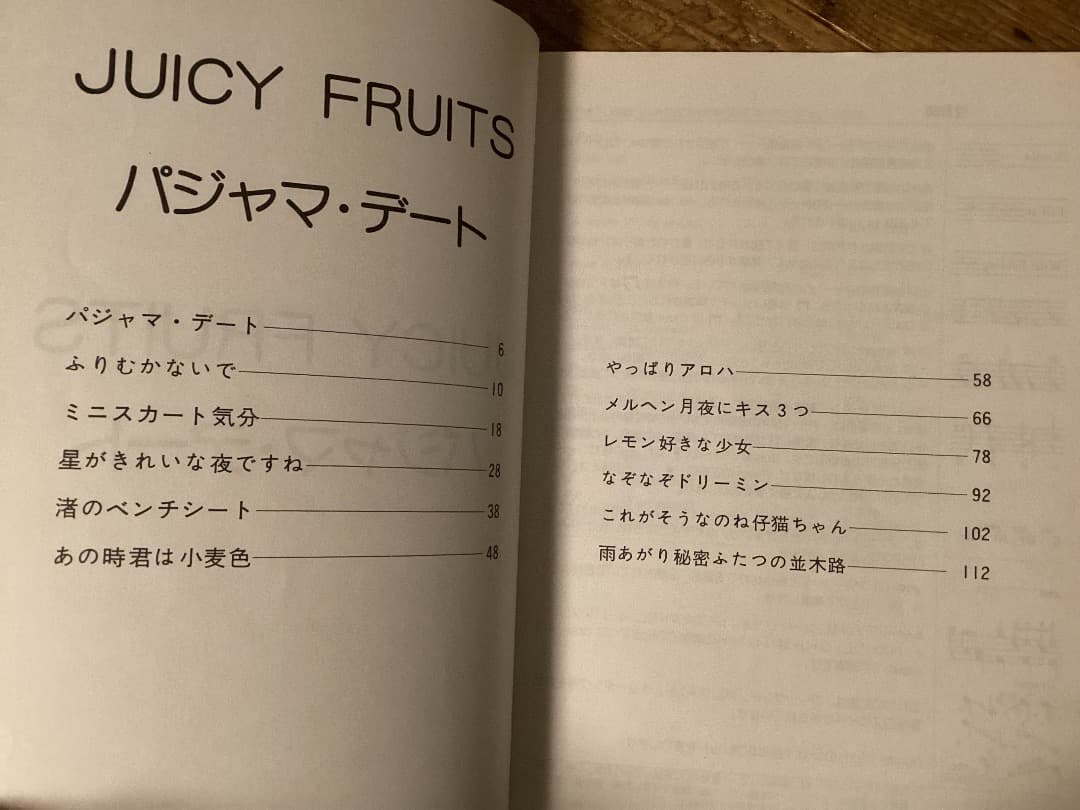 JUICY FRUITS
パジャマ・デート
パジャマ・デート 6
ふりむかないで 10
ミニスカート気分 18
星がきれいな夜ですね 28
渚のベンチシート 38
あの時君は小麦色 48
やっぱりアロハ 58
メルヘン月夜にキス3つ 66
レモン好きな少女 78
なぞなぞドリーミン 92
これがそうなのね仔猫ちゃん 102
雨あがり秘密ふたつの並木路 112